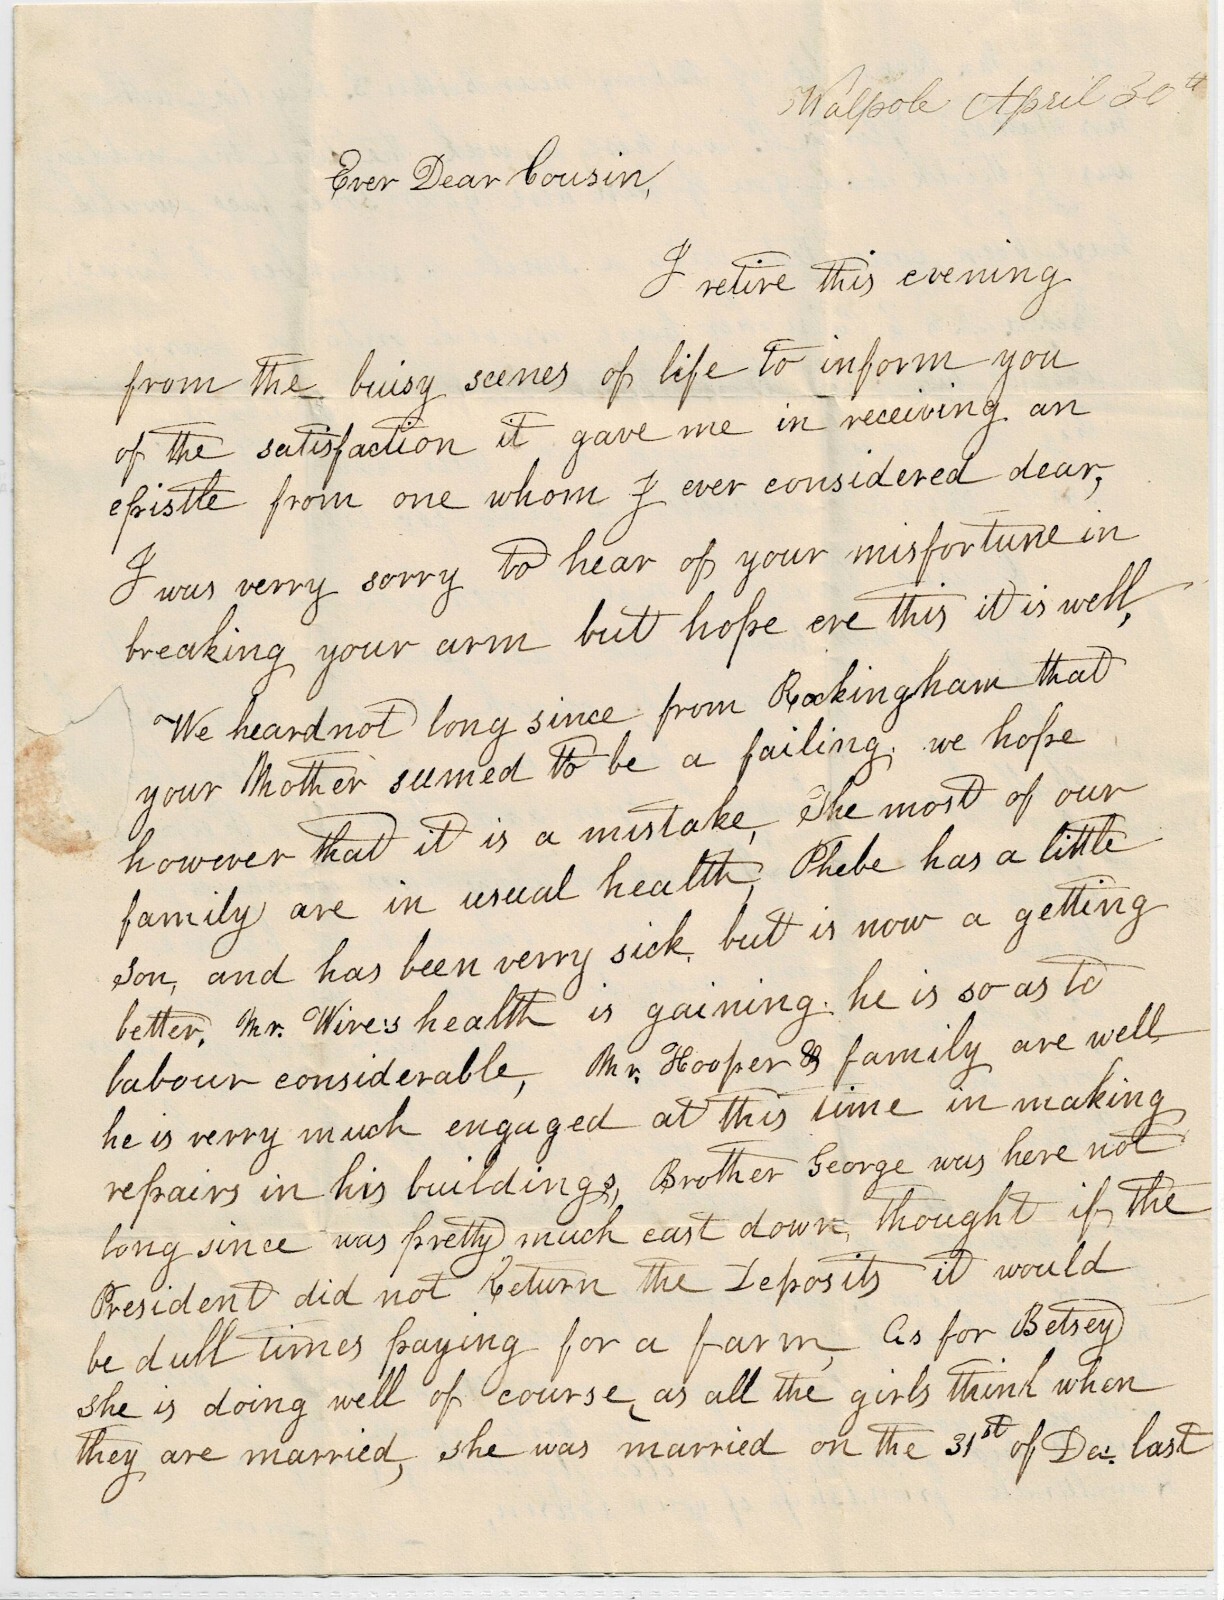 Walpole April 30th
Ever Dear Cousin,
I retire this evening
from the buisy scenes of life to inform you
of the satisfaction it gave me in receiving an
epistle from one whom I ever considered dear,
I was verry sorry to hear of your misfortune in
breaking your arm but hope ere this it is well,
We heard not long since from Rockingham that
your Mother seemed to be a failing, we hope
however that it is a mistake, The most of our
family are in usual health, Phebe has a little
son, and has been verry sick, but is now a getting
better, Mr. Wire's health is gaining, he is so as to
labour considerable, Mr. Hooper & family are well
he is verry much engaged at this time in making
repairs in his buildings, Brother George was here not
long since was pretty much cast down, thought if the
President did not Return the Deposits it would
be dull times paying for a farm, As for Betsey
she is doing well of course, as all the girls think when
they are married, she was married on the 31st of Dec. last